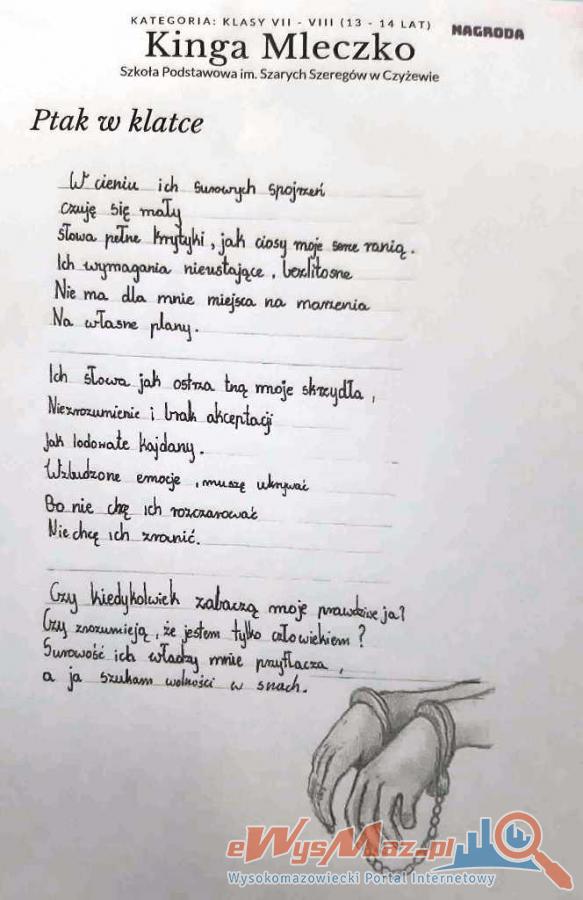 KATEGORIA: KLASY VII - VIII (13 - 14 LAT)
NAGRODA
Kinga Mleczko
Szkoła Podstawowa im. Szarych Szeregów w Czyżewie
Ptak w klatce
W cieniu ich surowych spojrzeń
czuję się mały
słowa pełne krytyki, jak ciosy moje serce ranią.
Ich wymagania nieustające, bezlitosne
Nie ma dla mnie miejsca na marzenia
Na własne plany.
Ich słowa jak ostrza tną moje skrzydła,
Niezrozumienie i brak akceptacji
Jak lodowate kajdany.
Wzbudzone emocje, muszę ukrywać
Bo nie chę ich rozczarować
Nie chcę ich zranić.
Czy kiedykolwiek zobaczą moje prawdziwe ja?
Czy zrozumieją, że jestem tylko człowiekiem?
Surowość ich władzy mnie przytłacza,
a ja szukam wolności w snach.
eWysMaz.pl
Wysokomazowiecki Portal Internetowy